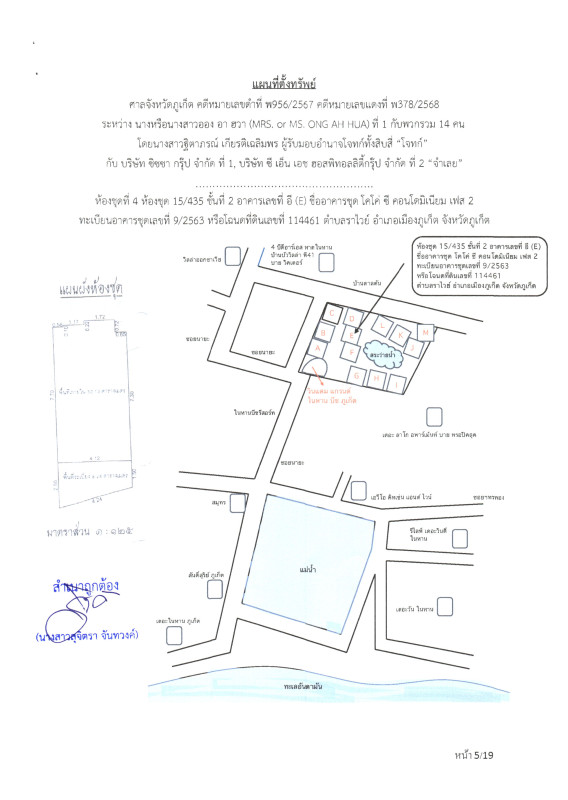 แผนที่ตั้งทรัพย์
ศาลจังหวัดภูเก็ต คดีหมายเลขดำที่ พ956/2567 คดีหมายเลขแดงที่ พ378/2568
ระหว่าง นางหรือนางสาวออง อา ฮวา (MRS. or MS. ONG AH HUA) ที่ 1 กับพวกรวม 14 คน
โดยนางสาวฐิตาภรณ์ เกียรติเฉลิมพร ผู้รับมอบอำนาจโจทก์ทั้งสิบสี่ "โจทก์"
กับ บริษัท ซิซซา กรุ๊ป จำกัด ที่ 1, บริษัท ซี เอ็น เอช ฮอสพิทอลลิตี้กรุ๊ป จำกัด ที่ 2 "จำเลย"
ห้องชุดที่ 4 ห้องชุด 15/435 ชั้นที่ 2 อาคารเลขที่ อี (E) ชื่ออาคารชุด โคโค่ ซี คอนโดมิเนียม เฟส 2
ทะเบียนอาคารชุดเลขที่ 9/2563 หรือโฉนดที่ดินเลขที่ 114461 ตำบลราไวย์ อำเภอเมืองภูเก็ต จังหวัดภูเก็ต
ห้องชุด 15/435 ชั้นที่ 2 อาคารเลขที่ อี (E)
ชื่ออาคารชุด โคโค่ ซี คอนโดมิเนียม เฟส 2
ทะเบียนอาคารชุดเลขที่ 9/2563
หรือโฉนดที่ดินเลขที่ 114461
ตำบลราไวย์ อำเภอเมืองภูเก็ต จังหวัดภูเก็ต
วิลล่าออกอาเวีย
4 บีดีอาร์เอส หาดในหาน
บ้านบัววิลล่า พี41
บาย วิคเตอร์
บ้านตาลคัน
แผนผังห้องชุด
1.72
C
D
L
K
M
B
E
J
A
F
สระว่ายน้ำ
G
H
I
ซอยนายะ
ซอยนายะ
วินแดม แกรนด์
ในหาน บีช ภูเก็ต
ในหานบีชรีสอร์ท
เดอะ ลาโก อพาร์เม้นท์ บาย พรอปิตอุด
ซอยนายะ
สมุทร
เอวีโอ คิทเช่น แอนด์ ไวน์
ซอยาทรทอง
มาตราส่วน ๑ : ๑๒๕
รีโลฟ์ เดอะวินดี้
ในหาน
แม่น้ำ
สันติสุรีย์ ภูเก็ต
สำเนาถูกต้อง
(นางสาวสุจิตรา จันทวงค์)
เดอะในหาน ภูเก็ต
เดอะวัน ในหาน
ทะเลอันดามัน
หน้า 5/19